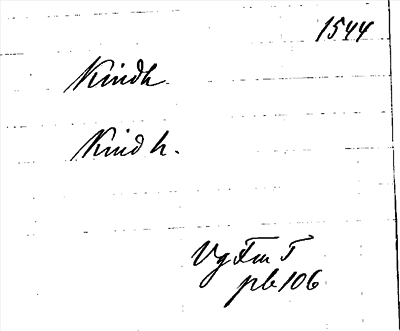 1544
Kindh.
Kind h.
Vg Fm T
pl 106